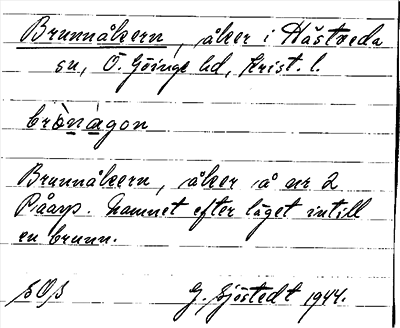 Brunnåkern, åker i Hästveda
sn, Ö. Göinge hd, Krist. l.
brònágon
Brunnåkern, åker å nr 2
Påarp. Namnet efter läget intill
en brunn.
SOS G. Sjöstedt 1944.